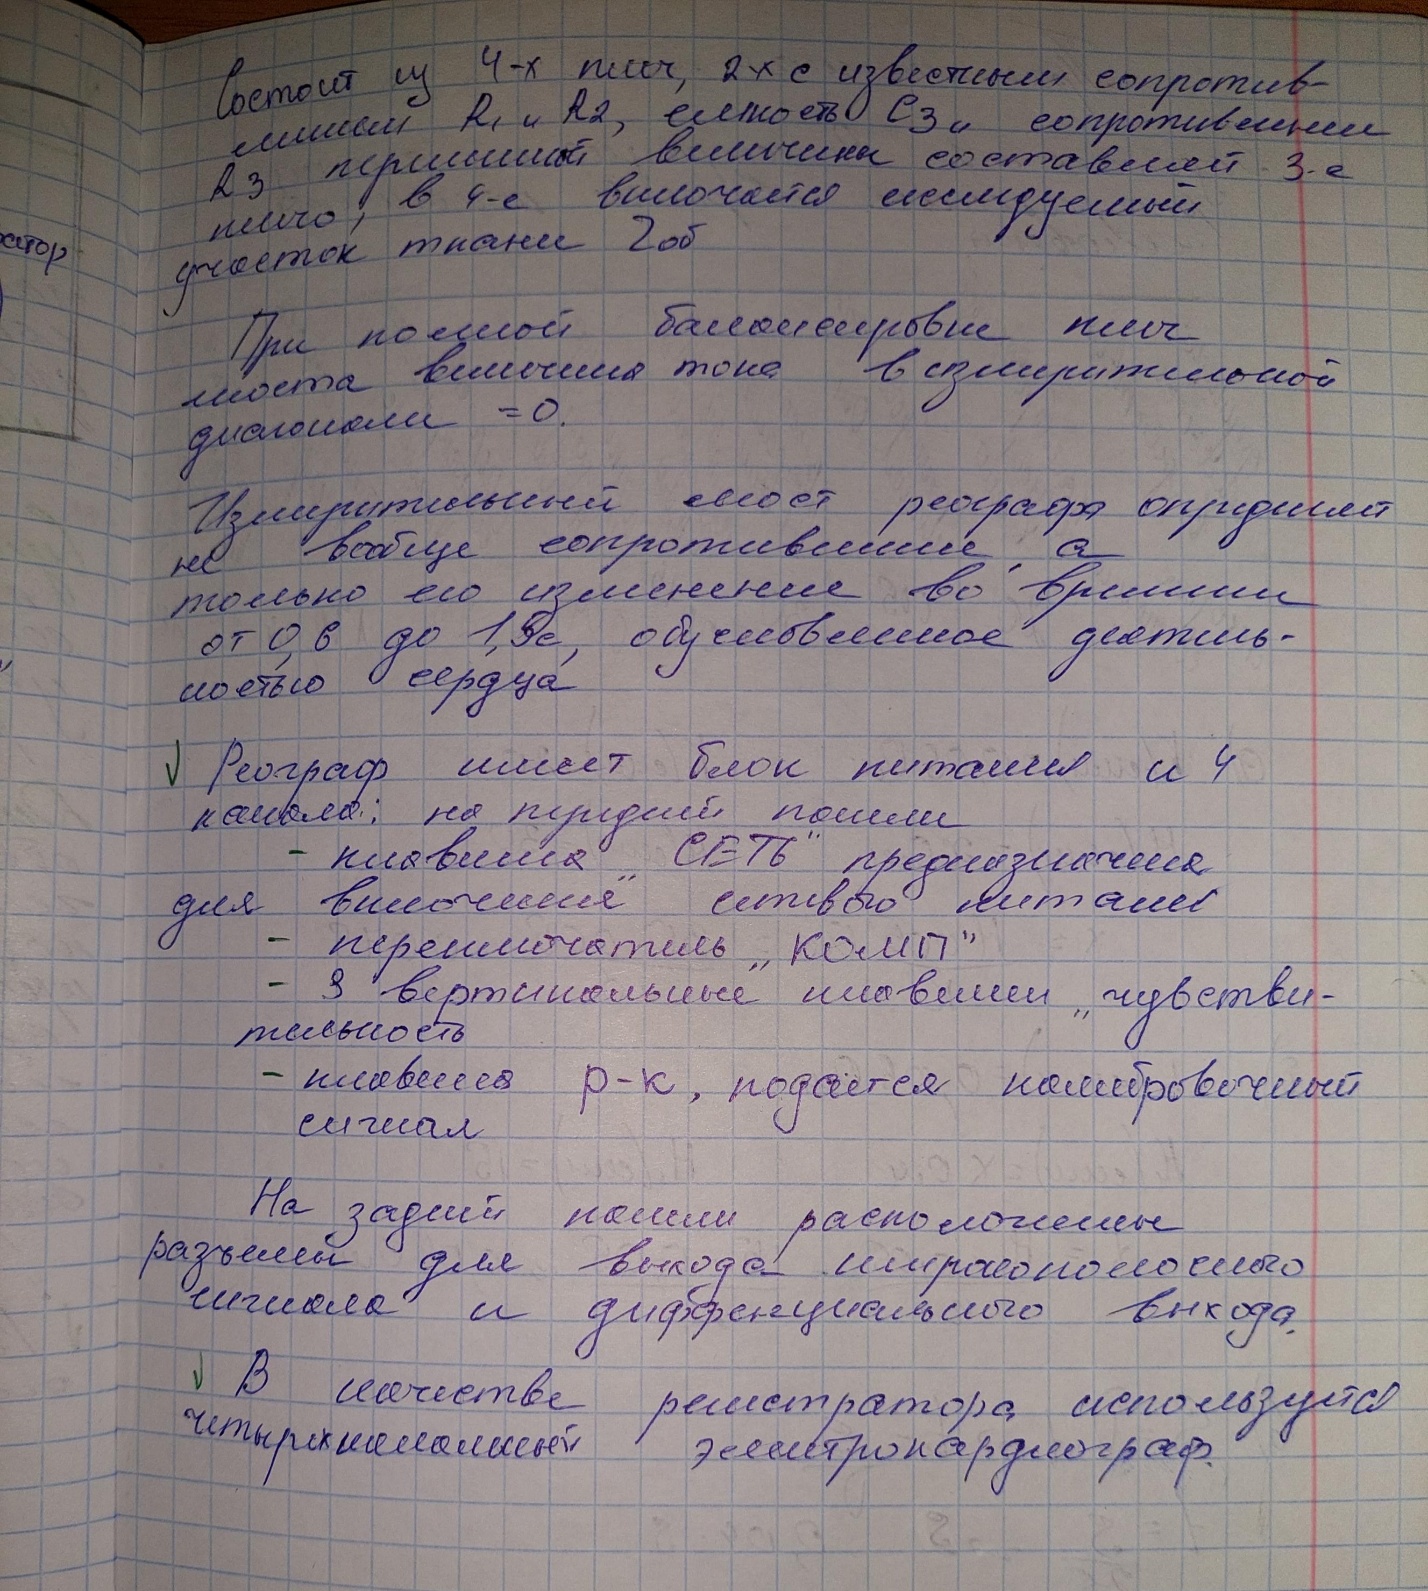 Состоит из 4-х плеч, 2х с известным сопротив-
лением R1 и R2, емкость C3 и сопротивление
R3 переменной величины составляет 3-е
плечо, в 4-е включается исследуемый
участок ткани Zоб
При полной балансировке плеч
моста величина тока в измерительной
диагонали =0.
Измерительный мост реографа определяет
не вообще сопротивление, а
только его изменение во времени
от 0,6 до 1,5с, обусловленное деятель-
ностью сердца
Реограф имеет блок питания и 4
канала: на передней панели
- клавиша „СЕТЬ" предназначена
для включения сетевого питания
- переключатель „КОМП"
- 3 вертикальные клавиши „чувстви-
тельность
- клавиша р-к, подается калибровочный
сигнал
На задней панели расположены
разъемы для выхода широкополосного
сигнала и дифференциального выхода.
В качестве регистратора используется
четырехканальный электрокардиограф.